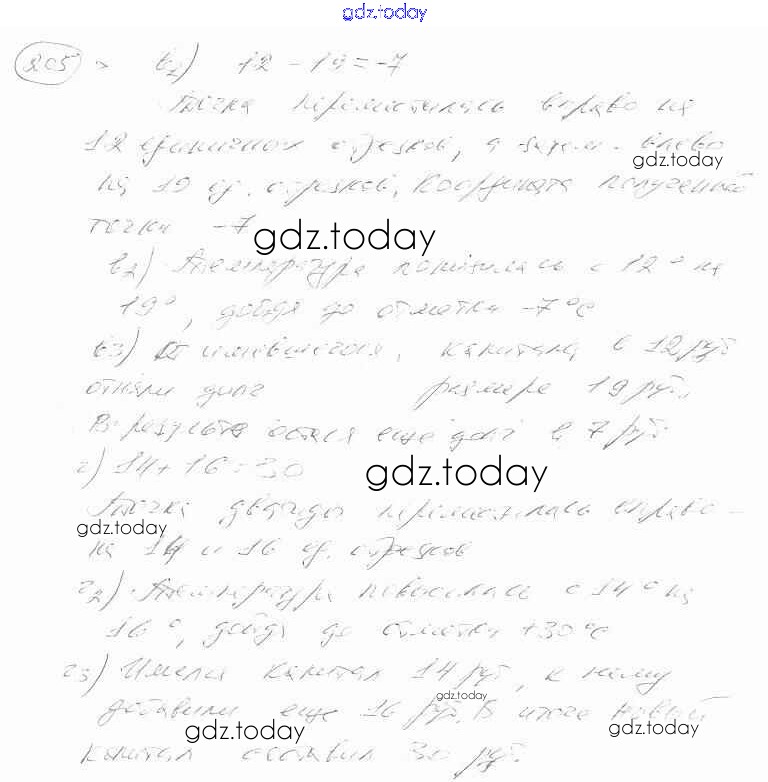 gdz.today
205 в1) 12 - 19 = -7
Точка переместилась вправо на
12 единичных отрезков, а затем влево
gdz.today
на 19 ед. отрезков, координата полученной
точки -7
gdz.today
в2) Температура понизилась с 12° на
19°, дойдя до отметки -7°С
в3) имевшегося капитала в 12 руб
отняли долг размере 19 руб.
В результате остался еще долг в 7 руб
г) 14 + 16 = 30
gdz.today
Точка дважды переместилась вправо
gdz.today
на 14 и 16 ед. отрезков
г2) Температура повысилась с 14° на
16°, дойдя до отметки +30°С
г3) Имелся капитал 14 руб, к нему
gdz.today
добавили еще 16 руб. В итоге новый
gdz.today
gdz.today
капитал составил 30 руб.